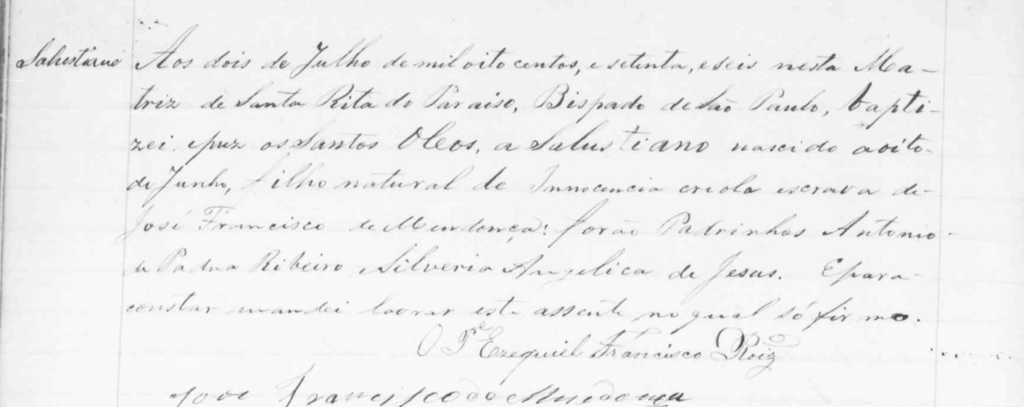 Salustiano
Aos dois de Julho de mil oito centos, e setenta, e seis nesta Ma-
triz de Santa Rita do Paraiso, Bispado de São Paulo, bapti-
zei, e puz os Santos Oleos, a Salustiano nascido a oito-
de Junho, filho natural de Innocencia criola escrava de
José Francisco de Mendonça: forão Padrinhos Antonio-
de Padua Ribeiro, e Silveria Angelica de Jesus. E para-
constar mandei lavrar este assento no qual só firmo.
O Pe Ezequiel Francisco Roiz
José Francisco de Mendonça